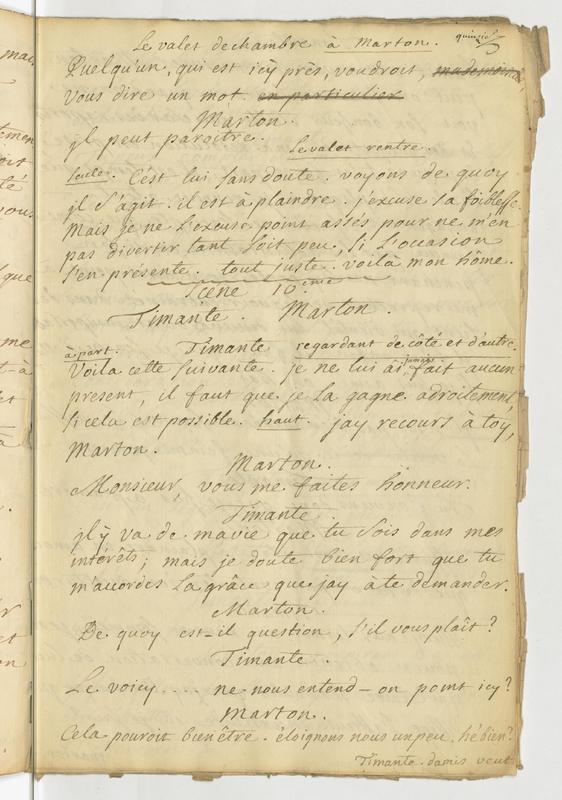 Le valet de chambre à Marton.
quinzie
Quelqu'un, qui est icÿ près, voudroit, mademoiselle,
vous dire un mot en particulier
Marton.
jl peut paroître.
Le valet rentre.
Seule. C'est lui sans doute. voyons de quoy
jl s'agit. il est à plaindre. j'excuse sa foiblesse.
Mais je ne l'excuse point assés pour ne m'en
pas divertir tant soit peu, si l'occasion
s'en présente. tout juste. voilà mon hôme.
Scene 10.eme
Timante. Marton.
à part. Timante regardant de côté et d'autre.
Voila cette suivante. je ne lui ai jamais fait aucun
présent, il faut que je la gagne adroitement,
si cela est possible. haut. jay recours à toy,
Marton.
Marton.
Monsieur, vous me faites honneur.
Timante.
jl ÿ va de ma vie que tu sois dans mes
intérêts; mais je doute bien fort que tu
m'accordes la grâce que jay à te demander.
Marton.
De quoy est-il question, s'il vous plaît?
Timante.
Le voicy .... ne nous entend-on point icy?
Marton.
Cela pouroit bien être. éloignons nous un peu. hé bien?
Timante. damis veut